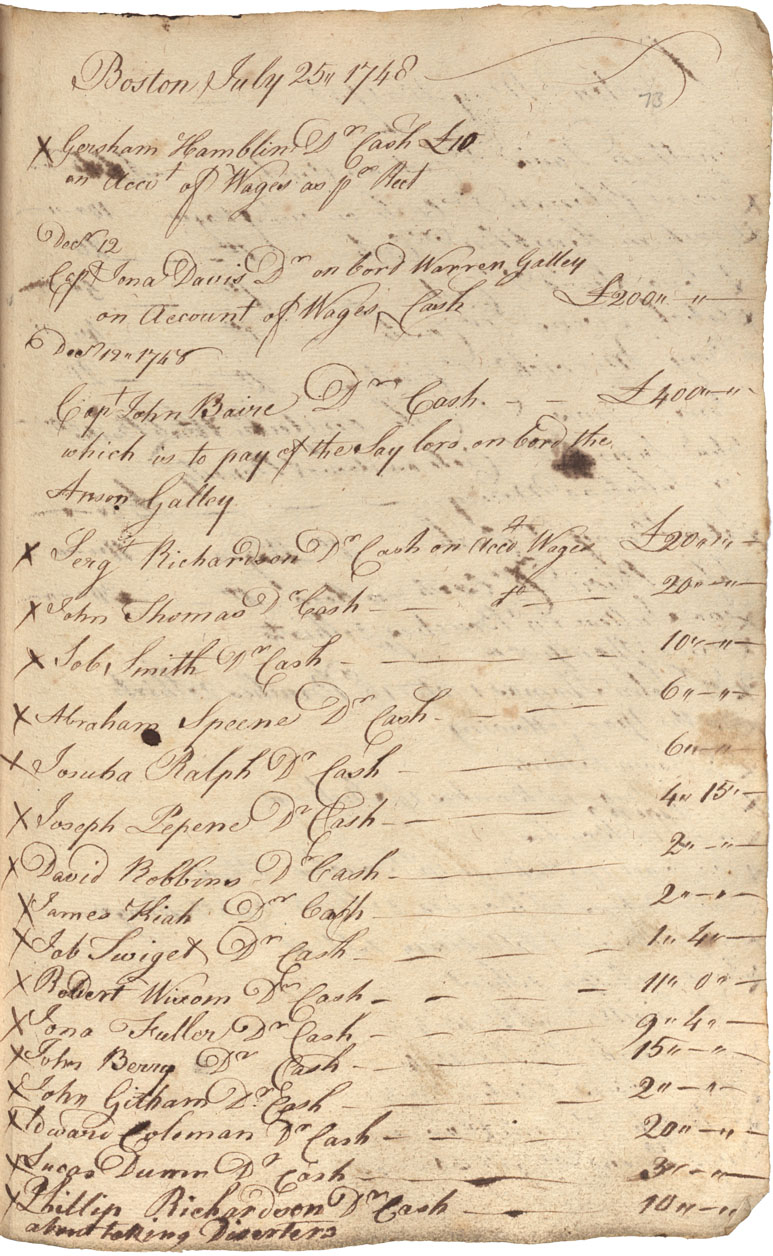 Boston July 25 〃 1748
73
x Gersham Hamblin Dr Cash £10
on Accot of Wages as pr Rect
Decr 12
Capt Jona Davis Dr on bord Warren Galley
on Account of Wages, Cash £200〃 — 〃 —
Decr 12〃 1748
Capt John Baire Dr Cash - - £400〃 — 〃 -
which is to pay of the Say lors on bord the
Anson Galley
x Sergt Richardson Dr Cash on Accot Wages £20〃 〃 -
x John Thomas Dr Cash - - 20〃 — 〃 -
x Job Smith Dr Cash - — — - - 10〃 - 〃 -
x Abraham Speene Dr Cash - - — — 6〃 - 〃 -
x Josuha Ralph Dr Cash - — — 6〃 - 〃
x Joseph Pepene Dr Cash - — — 4〃 15〃 -
x David Robbins Dr Cash - — — 2〃 - 〃 -
x James Kiah Dr Cash — — 2〃 - 〃 -
x Job Swiget Dr Cash - — — - 1〃 4〃 -
x Robert Wixom Dr Cash - - — - 11〃 0〃 -
x Jona Fuller Dr Cash - — — 9〃 4〃 -
x John Berry Dr Cash - — — 15〃 - 〃 -
x John Githam Dr Cash - — — 2〃 - 〃
x Edward Coleman Dr Cash - - — 20〃 - 〃 -
x Lucas Dunn Dr Cash — — - 3〃 - 〃 -
x Phillip Richardson Dr Cash - — 10〃 - 〃
about taking Diserters